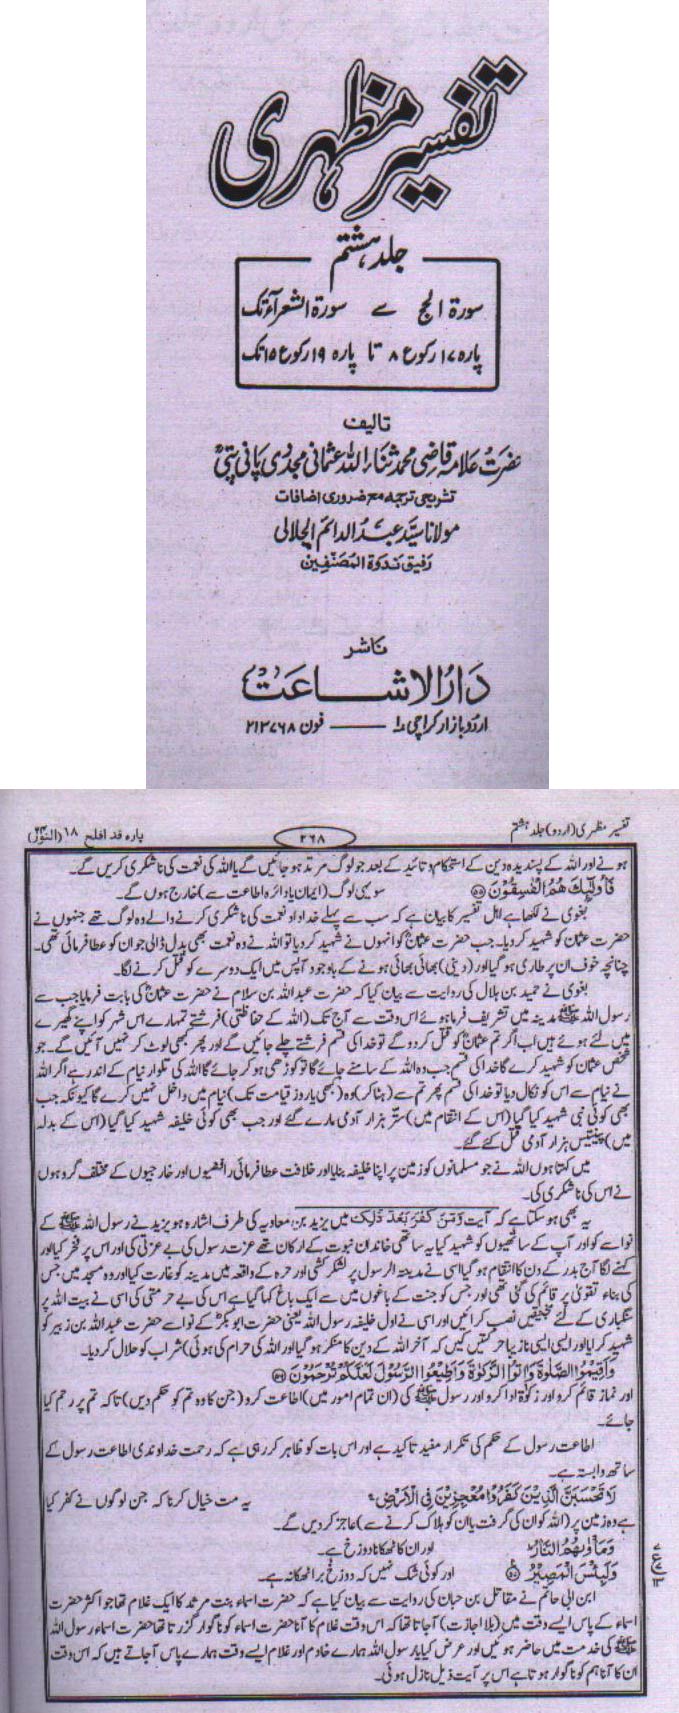 تفسیر مظہری
جلد ہشتم
سورۃ الحج سے سورۃ الشعرآء تک
پارہ ۱۷ رکوع ۸ تا پارہ ۱۹ رکوع ۱۵ تک
تالیف
حضرت علامہ قاضی محمد ثناء اللہ عثمانی مجددی پانی پتیؒ
تشریحی ترجمہ مع ضروری اضافات
مولانا سید عبد الدائم الجلالی
رفیق ندوۃ المصنفین
ناشر
دار الاشاعت
اردو بازار کراچی ۱ — فون ۲۱۳۷۶۸
تفسیر مظہری (اردو) جلد ہشتم
۳۶۸
پارہ قد افلح ۱۸ (النور ۲۴)
ہونے اور اللہ کے پسندیدہ دین کے استحکام و تائید کے بعد جو لوگ مرتد ہو جائیں گے یا اللہ کی نعمت کی ناشکری کریں گے۔
فَاُولٰٓئِكَ هُمُ الْفٰسِقُوْنَ ۝۵۵ سو یہی لوگ (ایمان یا دائرہ اطاعت سے) خارج ہوں گے۔
بغوی نے لکھا ہے اہل تفسیر کا بیان ہے کہ سب سے پہلے خداداد نعمت کی ناشکری کرنے والے وہ لوگ تھے جنہوں نے
حضرت عثمانؓ کو شہید کر دیا۔ جب حضرت عثمانؓ کو انہوں نے شہید کر دیا تو اللہ نے وہ نعمت بھی بدل ڈالی جو ان کو عطا فرمائی تھی۔
چنانچہ خوف ان پر طاری ہو گیا اور (دینی) بھائی بھائی ہونے کے باوجود آپس میں ایک دوسرے کو قتل کرنے لگا۔
بغوی نے حمید بن ہلال کی روایت سے بیان کیا کہ حضرت عبداللہ بن سلام نے حضرت عثمانؓ کی بابت فرمایا جب سے
رسول اللہ ﷺ مدینہ میں تشریف فرما ہوئے اس وقت سے آج تک (اللہ کے حفاظتی) فرشتے تمہارے اس شہر کو اپنے گھیرے
میں لئے ہوئے ہیں اب اگر تم عثمانؓ کو قتل کر دو گے تو خدا کی قسم فرشتے چلے جائیں گے اور پھر بھی لوٹ کر نہیں آئیں گے۔ جو
شخص عثمان کو شہید کرے گا خدا کی قسم جب وہ اللہ کے سامنے جائے گا تو کوڑھی ہو کر جائے گا اللہ کی تلوار نیام کے اندر ہے اگر اللہ
نے نیام سے اس کو نکال دیا تو خدا کی قسم پھر تم سے (ہٹا کر) وہ (کبھی یا روز قیامت تک) نیام میں داخل نہیں کرے گا کیونکہ جب
بھی کوئی نبی شہید کیا گیا (اس کے انتقام میں) ستر ہزار آدمی مارے گئے اور جب بھی کوئی خلیفہ شہید کیا گیا (اس کے بدلہ
میں) پینتیس ہزار آدمی قتل کئے گئے۔
میں کہتا ہوں اللہ نے جو مسلمانوں کو زمین پر اپنا خلیفہ بنایا اور خلافت عطا فرمائی رافضیوں اور خارجیوں کے مختلف گروہوں
نے اس کی ناشکری کی۔
یہ بھی ہو سکتا ہے کہ آیت وَمَنْ كَفَرَ بَعْدَ ذٰلِكَ میں یزید بن معاویہ کی طرف اشارہ ہو یزید نے رسول اللہ ﷺ کے
نواسے کو اور آپ کے ساتھیوں کو شہید کیا یہ ساتھی خاندان نبوت کے ارکان تھے عزت رسول کی بے عزتی کی اور اس پر فخر کیا اور
کہنے لگا آج بدر کے دن کا انتقام ہو گیا اسی نے مدینۃ الرسول پر لشکر کشی اور حرہ کے واقعہ میں مدینہ کو غارت کیا اور وہ مسجد میں جس
کی بناء تقویٰ پر قائم کی گئی تھی اور جس کو جنت کے باغوں میں سے ایک باغ کہا گیا ہے اس کی بے حرمتی کی اسی نے بیت اللہ پر
سنگباری کے لئے منجنیقیں نصب کرائیں اور اسی نے اول خلیفہ رسول اللہ یعنی حضرت ابو بکرؓ کے نواسے حضرت عبداللہ بن زبیر کو
شہید کرایا اور ایسی ایسی نازیبا حرکتیں کیں کہ آخر اللہ کے دین کا منکر ہو گیا اور اللہ کی حرام کی ہوئی شراب کو حلال کر دیا۔
وَاَقِيْمُوا الصَّلٰوةَ وَاٰتُوا الزَّكٰوةَ وَاَطِيْعُوا الرَّسُوْلَ لَعَلَّكُمْ تُرْحَمُوْنَ ۝۵۶
اور نماز قائم کرو اور زکوٰۃ ادا کرو اور رسول ﷺ کی (ان تمام امور میں) اطاعت کرو (جن کا وہ تم کو حکم دیں) تاکہ تم پر رحم کیا
جائے۔
اطاعت رسول کے حکم کی تکرار مفید تاکید ہے اور اس بات کو ظاہر کر رہی ہے کہ رحمت خداوندی اطاعت رسول کے
ساتھ وابستہ ہے۔
لَا تَحْسَبَنَّ الَّذِيْنَ كَفَرُوْا مُعْجِزِيْنَ فِي الْاَرْضِ ۚ یہ مت خیال کرنا کہ جن لوگوں نے کفر کیا
ہے وہ زمین پر (اللہ کو ان کی گرفت یا ان کو ہلاک کرنے سے) عاجز کر دیں گے۔
وَمَاْوٰىهُمُ النَّارُ ۭ اور ان کا ٹھکانا دوزخ ہے۔
وَلَبِئْسَ الْمَصِيْرُ ۝۵۷ اور کوئی شک نہیں کہ دوزخ برا ٹھکانہ ہے۔
ابن ابی حاتم نے مقاتل بن حبان کی روایت سے بیان کیا ہے کہ حضرت اسماء بنت مرثد کا ایک غلام تھا جو اکثر حضرت
اسماء کے پاس ایسے وقت میں (بلا اجازت) آجاتا تھا کہ اس وقت غلام کا آنا حضرت اسماء کو ناگوار گزرتا تھا حضرت اسماء رسول اللہ
ﷺ کی خدمت میں حاضر ہوئیں اور عرض کیا یا رسول اللہ ہمارے خادم اور غلام ایسے وقت ہمارے پاس آجاتے ہیں کہ اس وقت
ان کا آنا ہم کو ناگوار ہوتا ہے اس پر آیت ذیل نازل ہوئی۔